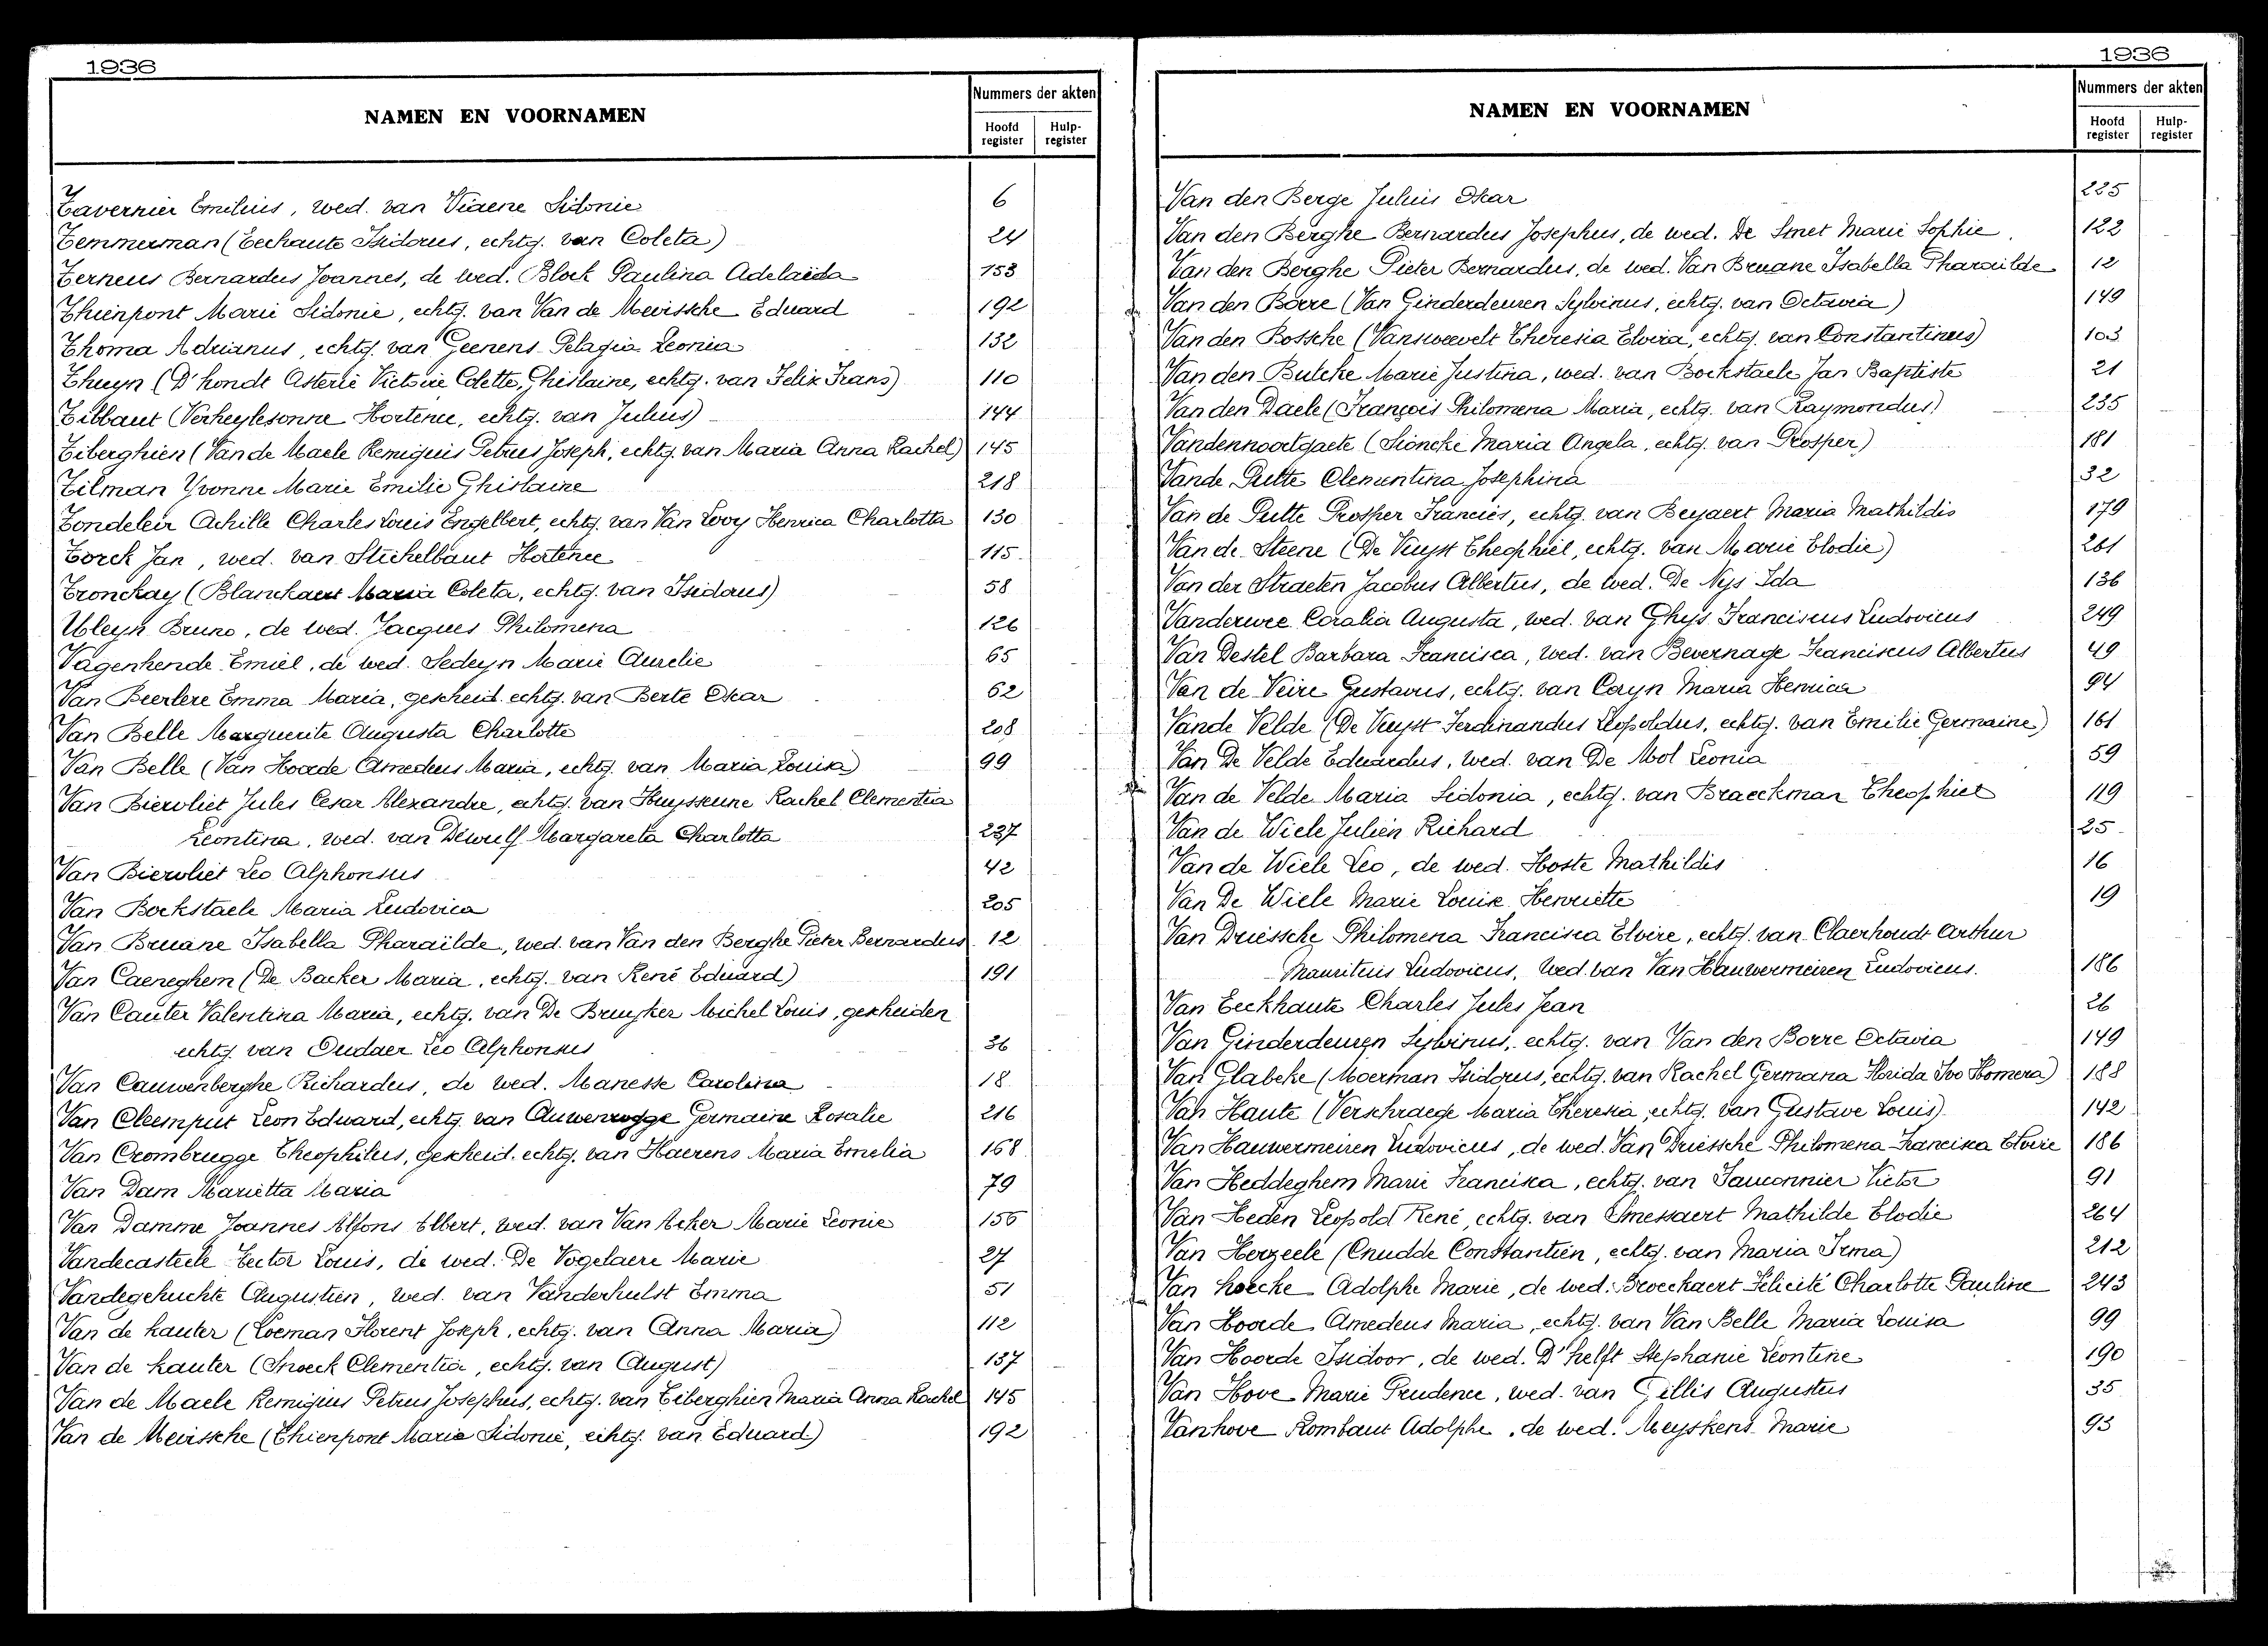 1936
NAMEN EN VOORNAMEN
Nummers der akten
Hoofd register
Hulp-register
Tavernier Emilius, wed. van Viaene Sidonie 6
Temmerman (Eeckaute Isidorus, echtg. van Coleta) 24
Terneus Bernardus Joannes, de wed. Block Paulina Adelaïda 153
Thienpont Marie Sidonie, echtg. van Van de Meirssche Eduard 192
Thoma Adrianus, echtg. van Geenens Pelagia Leonia 132
Thuyn (D'hondt Asterie Victoire Colette Ghislaine, echtg. van Felix Frans) 110
Tilbaut (Verheylesonne Hortence, echtg. van Julius) 144
Tiberghien (Van de Maele Remigius Petrus Joseph, echtg. van Maria Anna Rachel) 145
Tilman Yvonne Marie Emilie Ghislaine 218
Tondeleir Achille Charles Louis Engelbert, echtg. van Van Looy Henrica Charlotta 130
Torck Jan, wed. van Stichelbaut Hortence 115
Tronckay (Blanckaert Maria Coleta, echtg. van Isidorus) 58
Ubleyn Bruno, de wed. Jacques Philomena 126
Vagenhende Emiel, de wed. Sedeyn Marie Aurelie 65
Van Beerlere Emma Maria, gescheid. echtg. van Berte Oscar 62
Van Belle Marguerite Augusta Charlotte 208
Van Belle (Van Hoorde Amedeus Maria, echtg. van Maria Louisa) 99
Van Biervliet Jules Cesar Alexandre, echtg. van Huysseune Rachel Clementia
Leontina, wed. van Dewulf Margareta Charlotta 237
Van Biervliet Leo Alphonsus 42
Van Bockstaele Maria Ludovica 205
Van Bruane Isabella Pharaïlde, wed. van Van den Berghe Pieter Bernardus 12
Van Caeneghem (De Backer Maria, echtg. van René Eduard) 191
Van Cauter Valentina Maria, echtg. van De Bruyker Michel Louis, gescheiden
echtg. van Oudaer Leo Alphonsus 36
Van Cauwenberghe Richardus, de wed. Manesse Carolina 18
Van Cleemput Leon Edward, echtg. van Auwenrogge Germaine Rosalie 216
Van Crombrugge Theophilus, gescheid. echtg. van Haerens Maria Emelia 168
Van Dam Marietta Maria 79
Van Damme Joannes Alfons Albert, wed. van Van Acker Marie Leonie 156
Vandecasteele Hector Louis, de wed. De Vogelaere Marie 27
Vandegehuchte Augustien, wed. van Vanderhulst Emma 51
Van de Kauter (Loeman Florent Joseph, echtg. van Anna Maria) 112
Van de Kauter (Snoeck Clementia, echtg. van August) 137
Van de Maele Remigius Petrus Josephus, echtg. van Tiberghien Maria Anna Rachel 145
Van de Meirssche (Thienpont Marie Sidonie, echtg. van Eduard) 192
1936
NAMEN EN VOORNAMEN
Nummers der akten
Hoofd register
Hulp-register
Van den Berge Julius Oscar 225
Van den Berghe Bernardus Josephus, de wed. De Smet Marie Sophie 122
Van den Berghe Pieter Bernardus, de wed. Van Bruane Isabella Pharaïlde 12
Van den Borre (Van Ginderdeuren Sylvinus, echtg. van Octavia) 149
Van den Bossche (Vanswevelt Theresia Elvira, echtg. van Constantinus) 103
Van den Bulcke Marie Justina, wed. van Bockstaele Jan Baptiste 21
Van den Daele (François Philomena Maria, echtg. van Raymondus) 235
Vandennoortgaete (Sioncke Maria Angela, echtg. van Prosper) 181
Vande Putte Clementina Josephina 32
Van de Putte Prosper Franciés, echtg. van Beyaert Maria Mathildis 179
Van de Steene (De Kuyst Theophiel, echtg. van Marie Elodie) 261
Van der Straeten Jacobus Albertus, de wed. De Nys Ida 136
Vanderwee Coralia Augusta, wed. van Ghys Franciscus Ludovicus 249
Van Destel Barbara Francisca, wed. van Bevernage Franciscus Albertus 49
Van de Veire Gustavus, echtg. van Coryn Maria Henrica 94
Vande Velde (De Kuyst Ferdinandus Leopoldus, echtg. van Emilie Germaine) 161
Van De Velde Eduardus, wed. van De Mol Leonia 59
Van de Velde Maria Sidonia, echtg. van Braeckman Theophiel 119
Van de Wiele Julien Richard 25
Van de Wiele Leo, de wed. Hoste Mathildis 16
Van De Wiele Marie Louise Henriette 19
Van Driessche Philomena Francisca Elvire, echtg. van Claerhoudt Arthur
Mauritius Ludovicus, wed. van Van Hauwermeiren Ludovicus. 186
Van Eeckhaute Charles Jules Jean 26
Van Ginderdeuren Sylvinus, echtg. van Van den Borre Octavia 149
Van Glabeke (Moerman Isidorus, echtg. van Rachel Germana Florida Ivo Homera) 188
Van Haute (Verschraege Maria Theresia, echtg. van Gustave Louis) 142
Van Hauwermeiren Ludovicus, de wed. Van Driessche Philomena Francisca Elvire 186
Van Heddeghem Marie Francisca, echtg. van Sauconnier Victor 91
Van Heden Leopold René, echtg. van Smessaert Mathilde Elodie 264
Van Herzeele (Cnudde Constantien, echtg. van Maria Irma) 212
Van hoecke Adolphe Marie, de wed. Broeckaert Félicité Charlotte Pauline 243
Van Hoorde Amedeus Maria, echtg. van Van Belle Maria Louisa 99
Van Hoorde Isidoor, de wed. D'helft Stephanie Leontine 190
Van Hove Marie Prudence, wed. van Gillis Augustus 35
Vanhove Rombaut Adolphe, de wed. Meyskens Marie 93